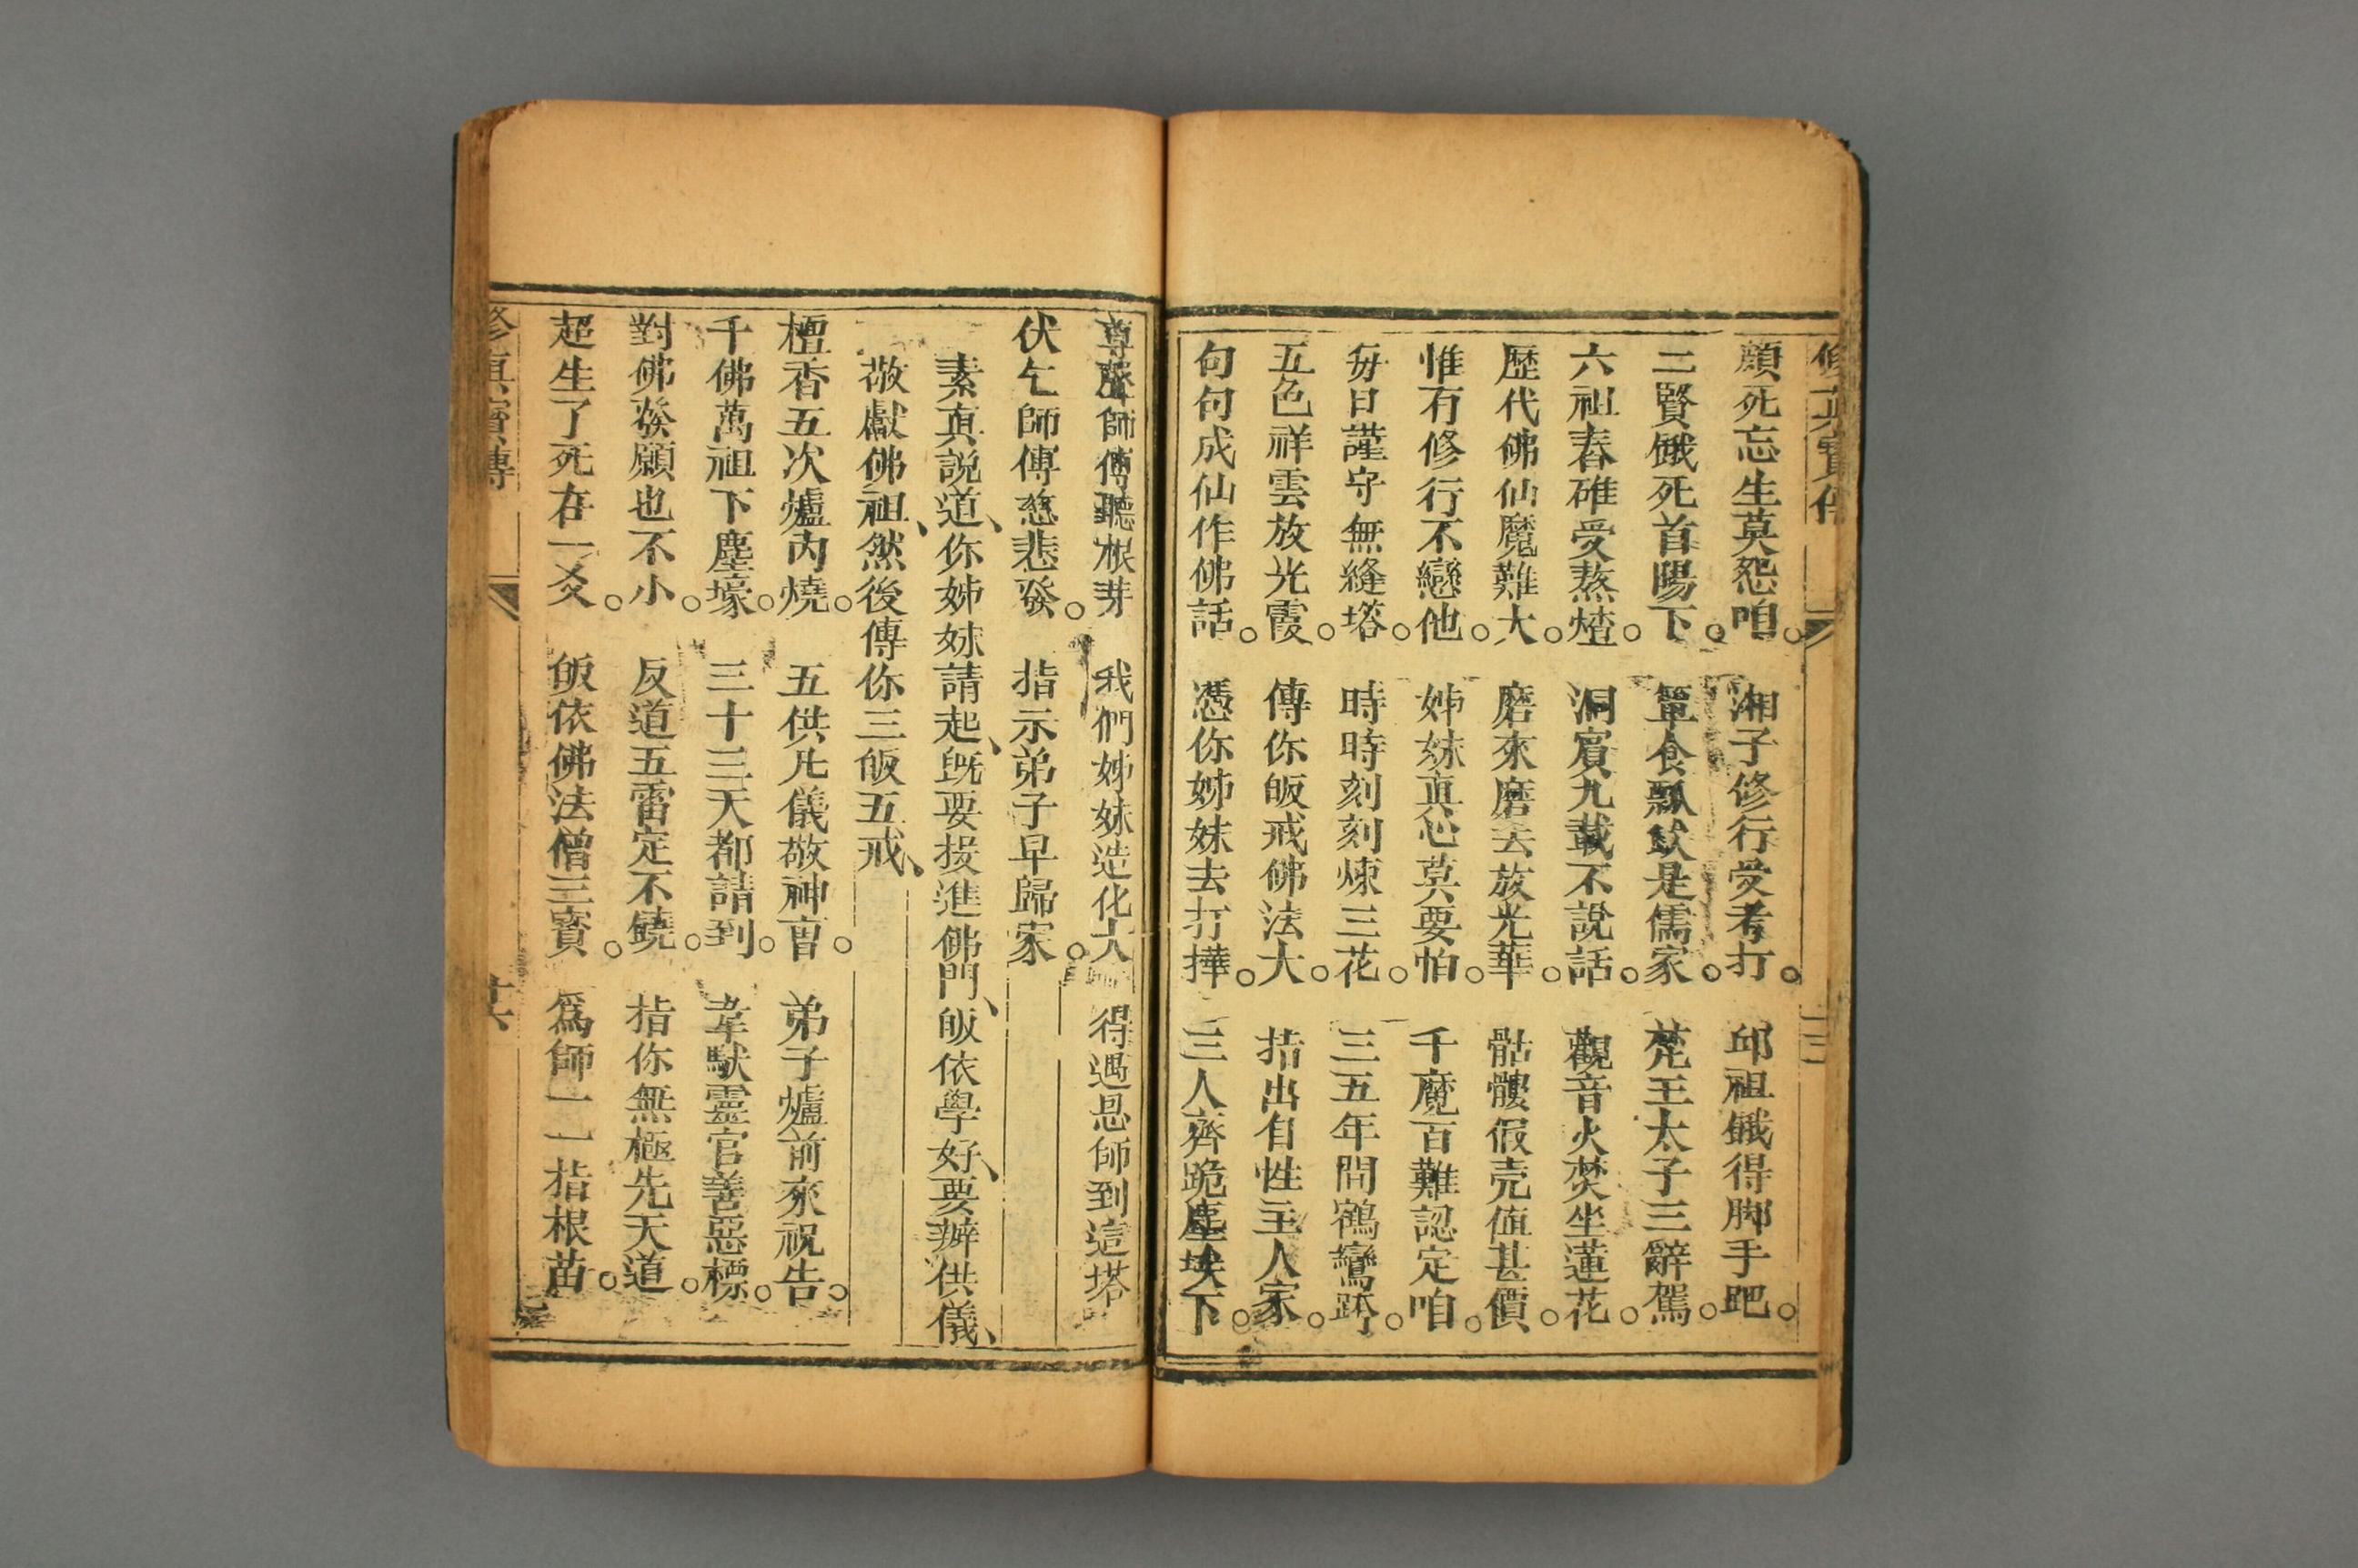 修真寳傳
三
顏死忘生莫怨咱。湘子修行受考打。邱祖餓得脚手跁。
二賢餓死首陽下。簞食瓢飲是儒家。梵王太子三辭駕。
六祖舂碓受熬煡。洞賓九載不說話。觀音火焚坐蓮花。
歷代佛仙魔難大。磨來磨去放光華。骷髏假壳值甚價。
惟有修行不戀他。姊妹真心莫要怕。千魔百難認定咱。
每日謹守無縫塔。時時刻刻煉三花。三五年間鶴鸞跨。
五色祥雲放光霞。傳你皈戒佛法大。指出自性主人家。
句句成仙作佛話。憑你姊妹去打摔。三人齊跪塵埃下。
尊聲師傅聽根芽 我們姊妹造化大。得遇恩師到這塔
伏乞師傅慈悲發。指示弟子早歸家。
素真說道、你姊妹請起、旣要投進佛門、皈依學好、要辦供儀、
敬獻佛祖、然後傳你三皈五戒、
檀香五次爐內燒。五供凡儀敬神霄。弟子爐前來祝告。
千佛萬祖下塵壕。三十三天都請到。韋馱靈官善惡標。
對佛發願也不小。反道五雷定不饒。指你無極先天道。
超生了死在一爻。皈依佛法僧三寶。爲師一一指根苗。
修真寳傳
廿六